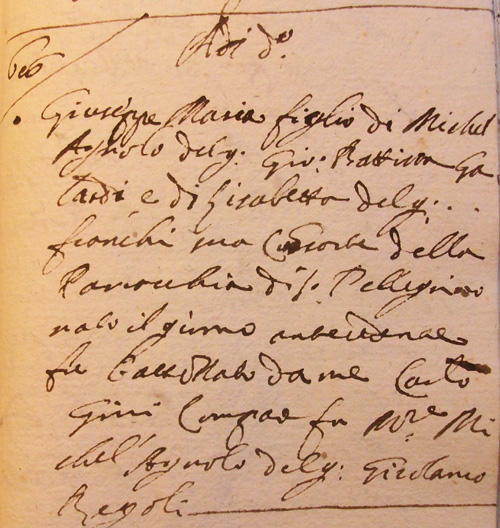 Adi d.º
Giuseppe Maria figlio di Michel
Agnolo del q. Gio. Battista Ga
lardi e di Lisabetta del q. . .
franchi sua Consorte della
Parrochia di S. Pellegrino
nato il giorno antecedente
fu battezzato da me Carlo
Gini Compae fu Mi
chel' Agnolo del q: Girolamo
Regoli